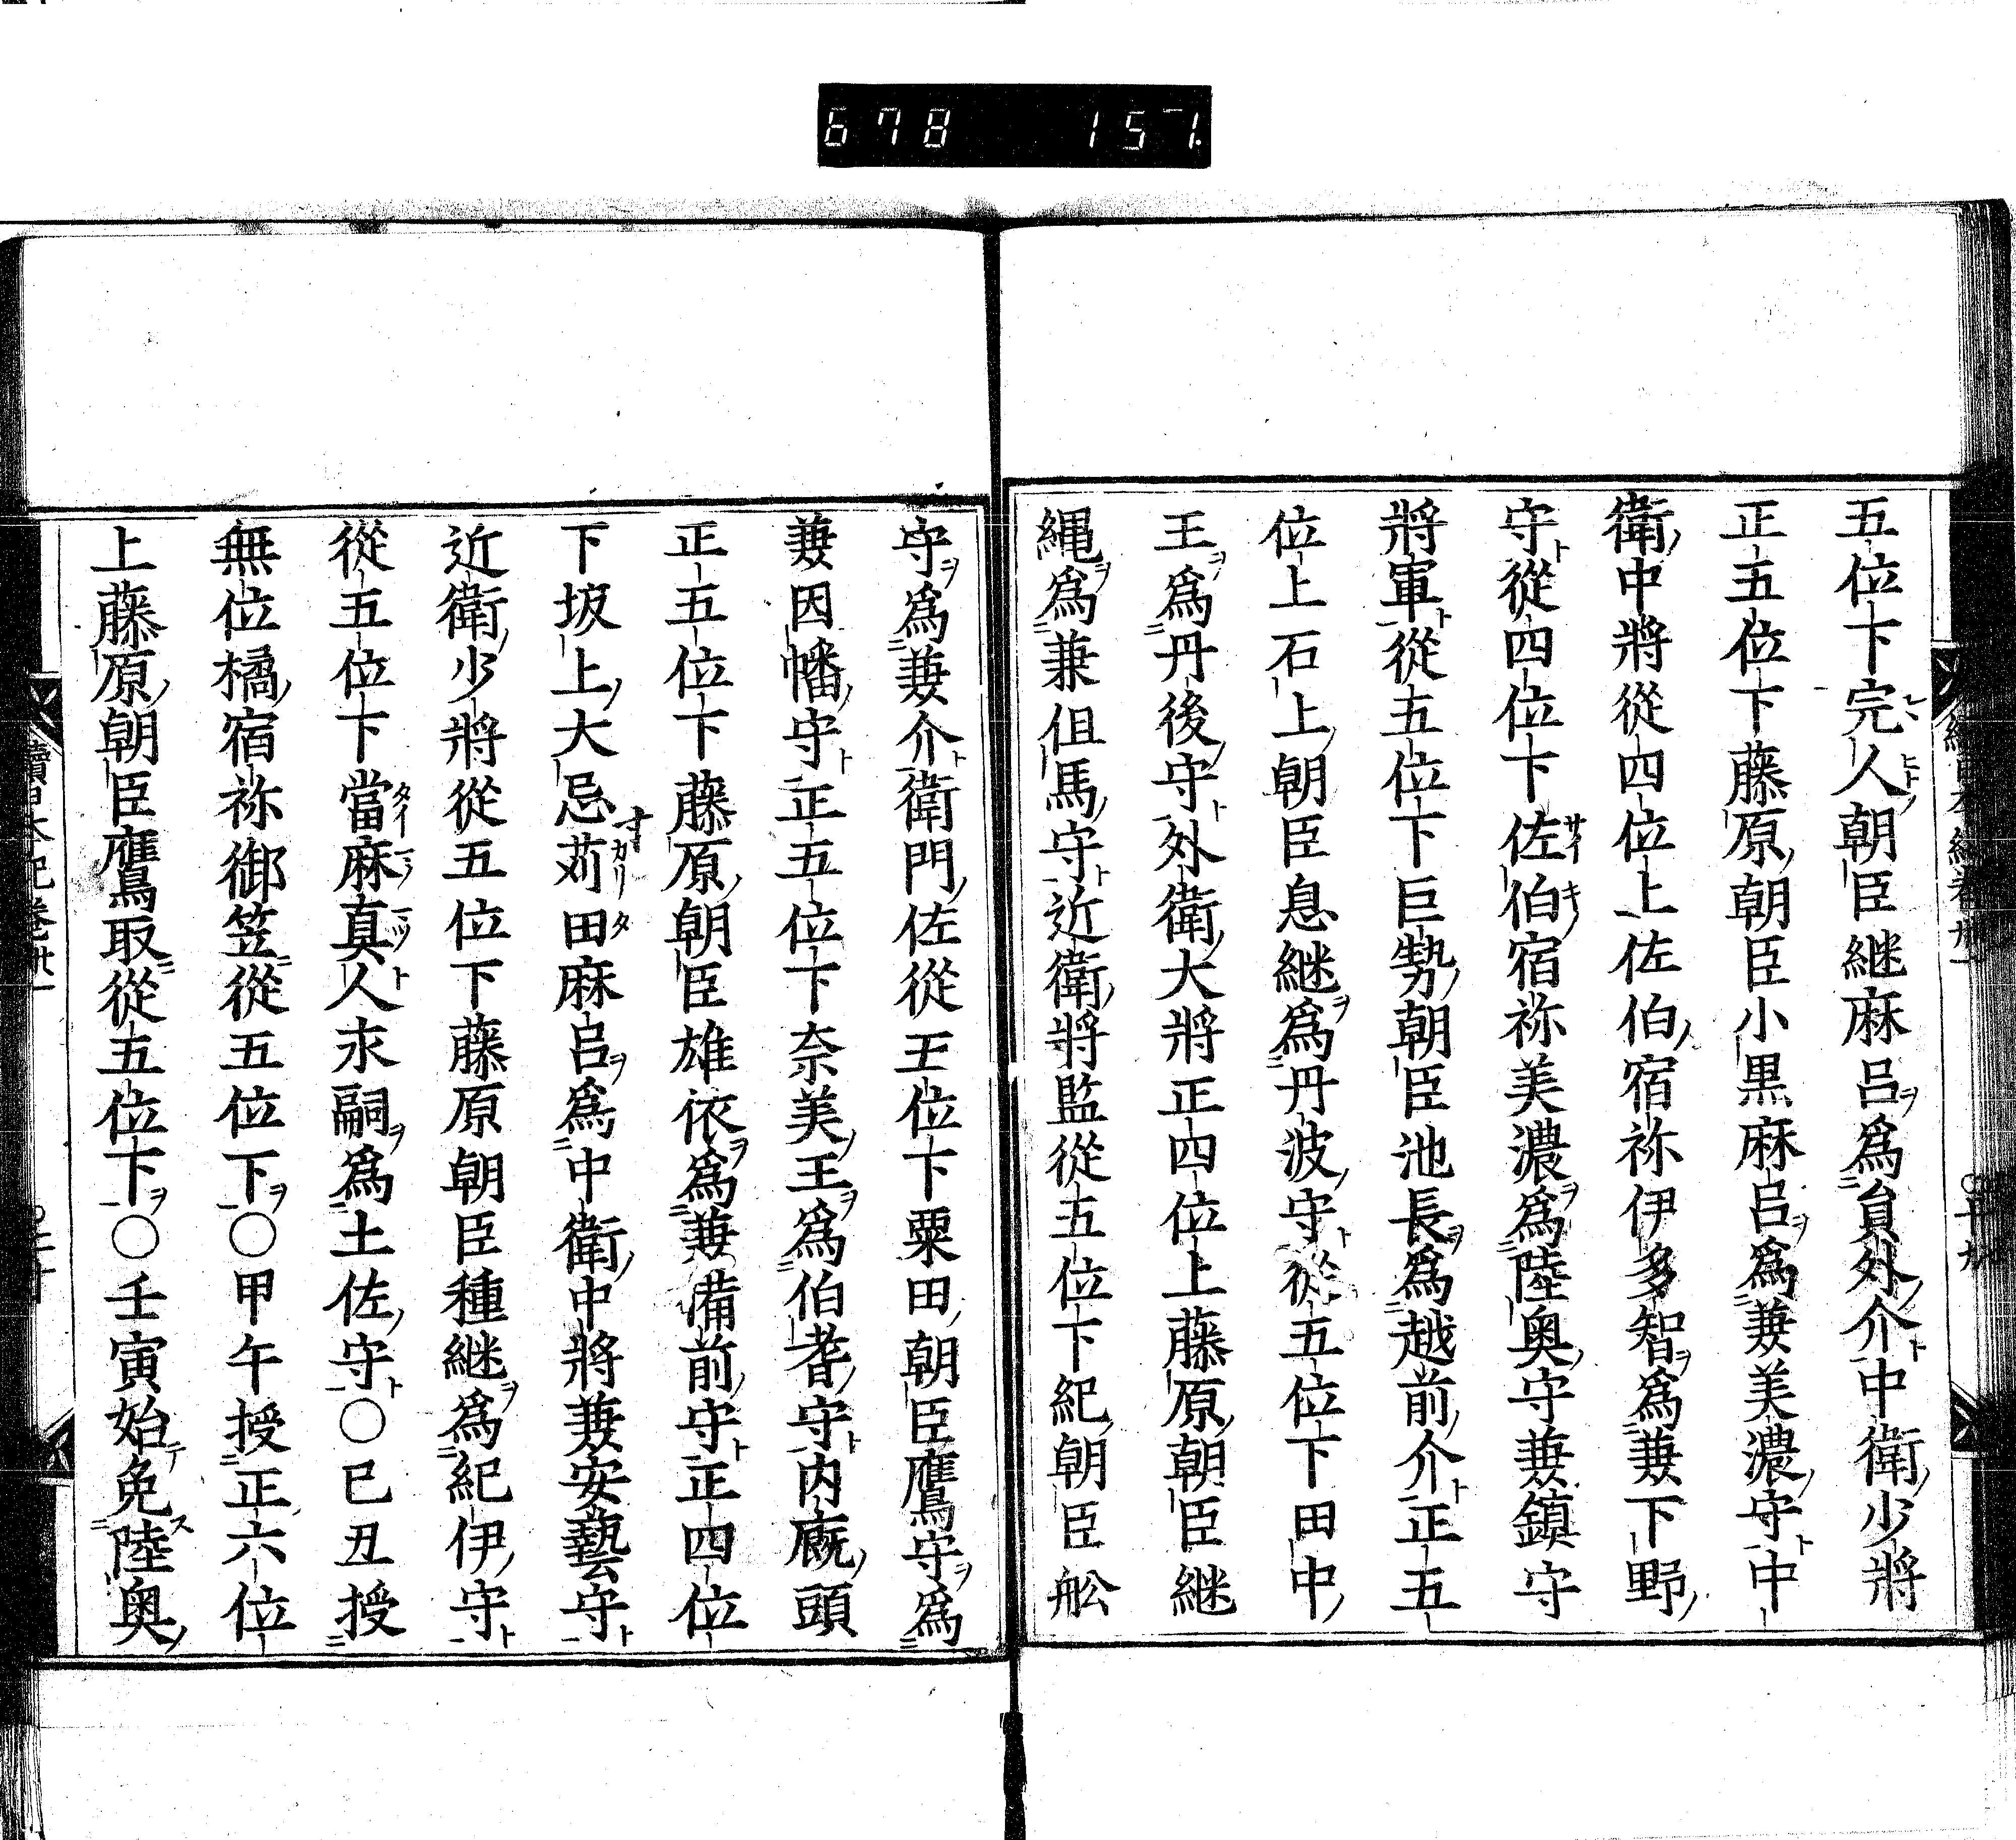 678 157
五位下完人朝臣継麻呂爲員外介中衛少將
正五位下藤原朝臣小黒麻呂爲兼美濃守中
衛中將從四位上佐伯宿祢伊多智爲兼下野
守從四位下佐伯宿祢美濃爲陸奥守兼鎮守
將軍從五位下巨勢朝臣池長爲越前介正五
位上石上朝臣息継爲丹波守從五位下田中
王爲丹後守外衛大將正四位上藤原朝臣継
縄爲兼但馬守近衛將監從五位下紀朝臣舩
守爲兼介衛門佐從五位下粟田朝臣鷹守爲
兼因幡守正五位下奈美王爲伯耆守内廐頭
正五位下藤原朝臣雄依爲兼備前守正四位
下坂上大忌苅田麻呂爲中衛中將兼安藝守
近衛少將從五位下藤原朝臣種継爲紀伊守
從五位下當麻真人永嗣爲土佐守○已丑授
無位橘宿祢御笠從五位下○甲午授正六位
上藤原朝臣鷹取從五位下○壬寅始免陸奥